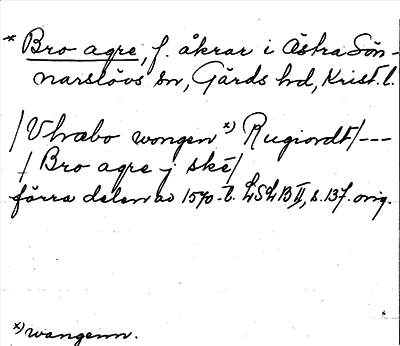 * Bro agre, f. åkrar i Östra Sön-
narslövs sn, Gärds hd, Krist. l.
/Vhrabo wongen *) Rugiordt/---
/Bro agre j ske/
förra delen av 1570-t. LSLB II, s. 137. orig.
*) wangenn.